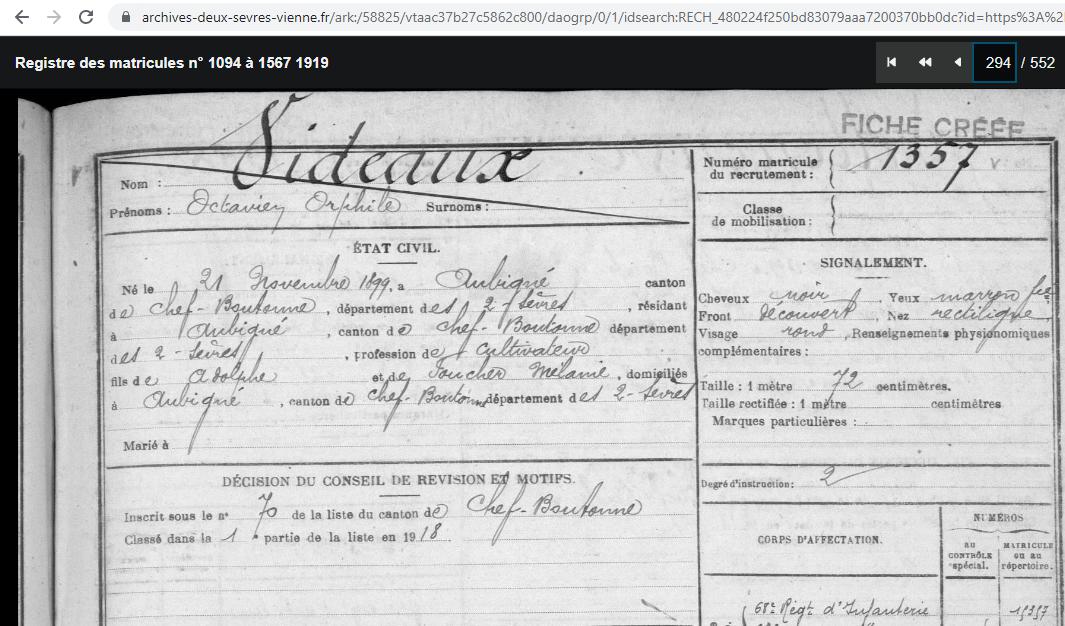 archives-deux-sevres-vienne.fr/ark:/58825/vtaac37b27c5862c800/daogrp/0/1/idsearch:RECH_480224f250bd83079aaa7200370bb0dc?id=https%3A%2
Registre des matricules n° 1094 à 1567 1919
294 / 552
FICHE CRÉÉE
Nom : Videaux
Prénoms : Octavien Orphile Surnoms :
Numéro matricule du recrutement : 1357
Classe de mobilisation :
ÉTAT CIVIL.
Né le 21 Novembre 1899, à Aubigné canton
de Chef-Boutonne, département des 2 Sèvres, résidant
à Aubigné, canton de Chef-Boutonne département
des 2-Sèvres, profession de Cultivateur
fils de Adolphe et de Foucher Mélanie, domiciliés
à Aubigné, canton de Chef-Boutonne département des 2-Sèvres
Marié à
SIGNALEMENT.
Cheveux noir Yeux marron
Front découvert, Nez rectiligne
Visage rond, Renseignements physionomiques
complémentaires :
Taille : 1 mètre 72 centimètres.
Taille rectifiée : 1 mètre centimètres
Marques particulières :
Degré d'instruction : 2
DÉCISION DU CONSEIL DE REVISION ET MOTIFS.
Inscrit sous le n° 70 de la liste du canton de Chef-Boutonne
Classé dans la 1 partie de la liste en 1918.
CORPS D'AFFECTATION.
NUMÉROS
AU CONTRÔLE spécial.
MATRICULE ou au répertoire.
68e Régt d'Infanterie